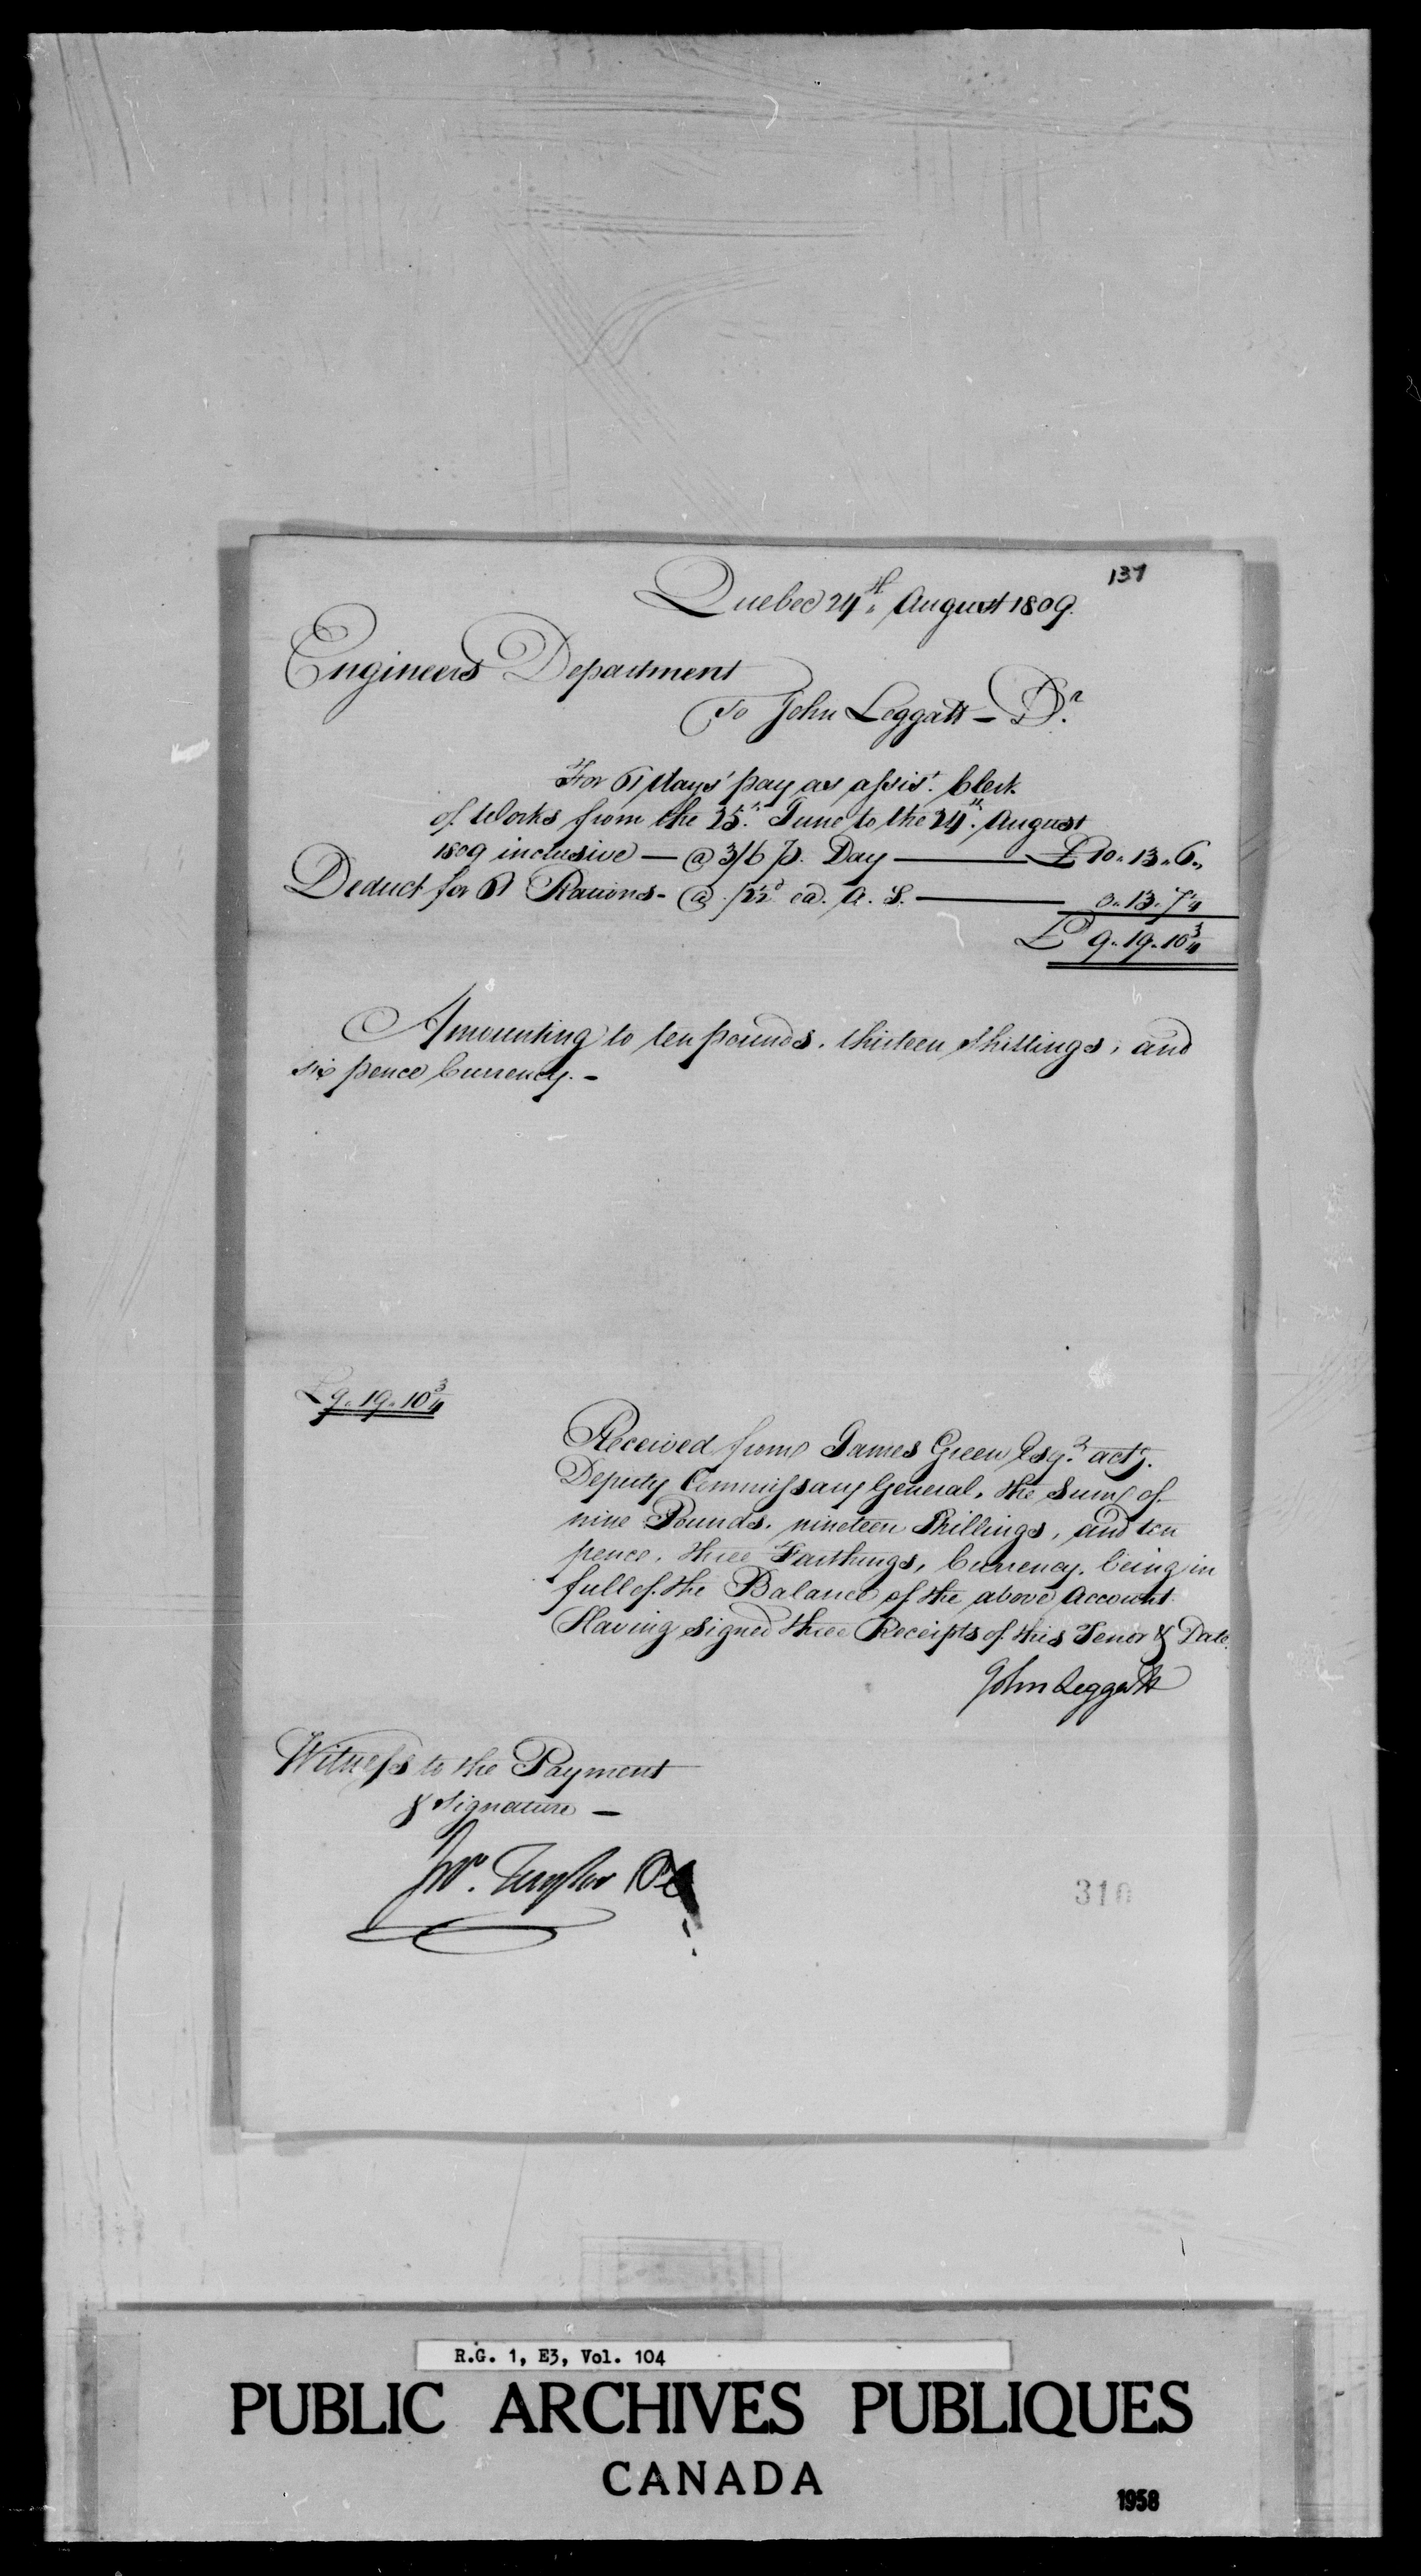 137
Quebec 24th August 1809.
Engineers Department
To John Leggatt - Dr.
For 61 days' pay as assist. Clerk
of Works from the 25th June to the 24th August
1809 inclusive — @ 3/6 p. Day — £ 10.. 13.. 6..
Deduct for 61 Rations - @ ea. A. S. — 0.. 13.. 7 1/4
£ 9.. 19.. 10 3/4
Amounting to ten pounds, thirteen shillings, and
six pence Currency. -
£ 9.. 19.. 10 3/4
Received from James Green Esqr. actg.
Deputy Commissary General, the Sum of
nine Pounds, nineteen Shillings, and ten
pence, three Farthings, Currency, being in
full of the Balance of the above Account
Having signed three Receipts of this Tenor & Date.
John Leggatt
Witness to the Payment
& Signature —
Jno. Taylor
310
R.G. 1, E3, Vol. 104
PUBLIC ARCHIVES PUBLIQUES
CANADA
1958